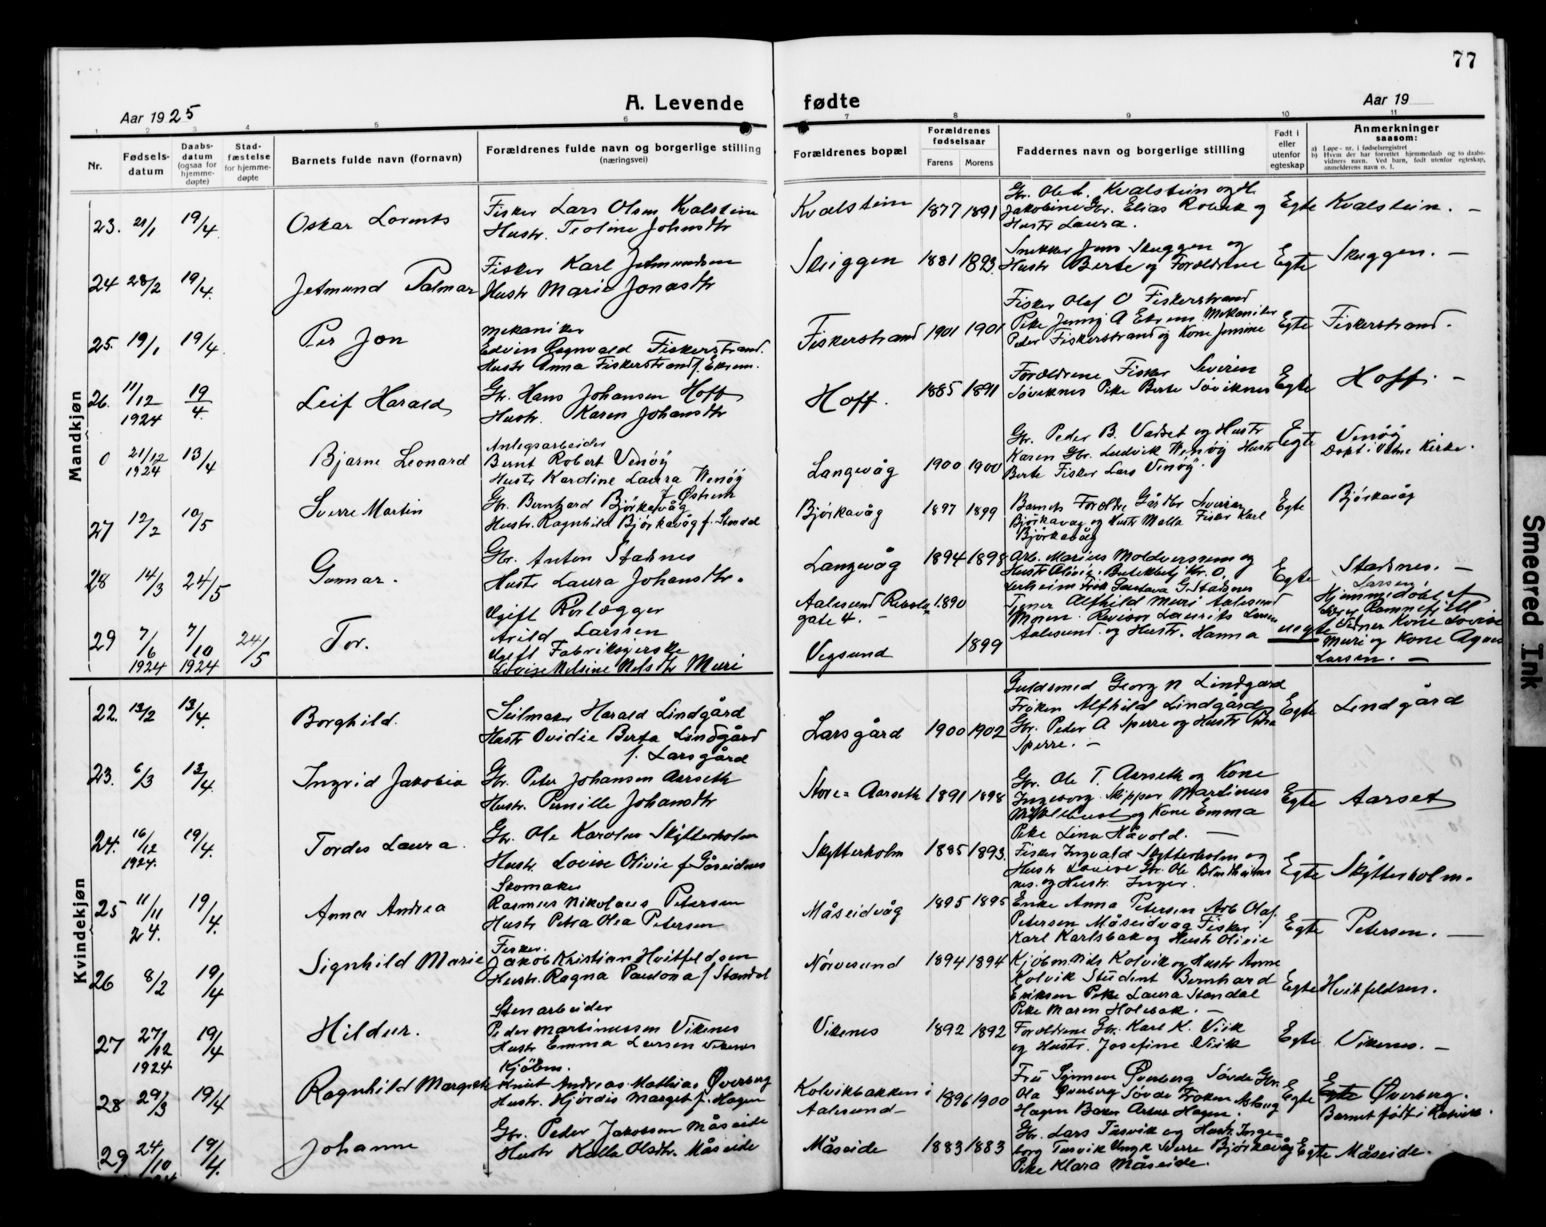 77
Aar 1925
A. Levende fødte
Aar 19
1 2 3 4 5 6 7 8 9 10 11
Nr.
Fødsels-datum
Daabs-datum (ogsaa for hjemme-døpte)
Stad-fæstelse for hjemme-døpte
Barnets fulde navn (fornavn)
Forældrenes fulde navn og borgerlige stilling (næringsvei)
Forældrenes bopæl
Forældrenes fødselsaar
Farens Morens
Faddernes navn og borgerlige stilling
Født i eller utenfor egteskap
Anmerkninger saasom:
a) Løpe-nr. i fødselsregistret
b) Hvem der har forrettet hjemmedaab og to daabsvidners navn. Ved barn, født utenfor egteskap, anmelderens navn o. l.
Mandkjøn
23. 21/1 19/4 Oskar Lorents
Fisker Lars Olsen Kvalstein
Hustr. Teoline Johnsdtr
Kvalstein 1877 1891
Gbr. Ole L. Kvalstein og H.
Jakobine Gbr. Elias Rolvik og
Hustr Laura.
Egte Kvalstein. —
24 28/2 19/4. Jetmund Palmar
Fisker Karl Jetmundsen
Hustr Marie Jonasdtr
Skuggen 1881 1893.
Snikker Jens Skuggen og
Hustr Berte og Forældrene
Egte Skuggen. —
25. 19/1 19/4 Per Jon
Mekaniker
Edvin Ragnvald Fiskerstrand.
Hustr Anna Fiskerstrand f.
Fiskerstrand 1901 1901
Fisker Olaf O Fiskerstrand
Pike Jenny A Mekaniker
Peder Fiskerstrand og Kone
Egte Fiskerstrand.
26. 11/12 1924 19/4 Leif Harald
Gbr. Hans Johansen Hoff
Hustr. Karen Johansdtr
Hoff. 1885 1891
Forældrene Fisker Severin
Søviknes Pike Berte Søviknes
Egte Hoff. —
0 21/12 1924 13/4 Bjarne Leonard
Anlegsarbeider
Bernt Robert Venøy
Hustr Karoline Laura Wenøy
f Østrem
Langevåg 1900 1900
Gbr. Peder B. og Hustr
Karen Gbr. Ludvik Wenøy Hustr
Berte Fisker Lars Venøy.
Egte Venøy
Døpt i Kirke.
27 12/2 10/5 Sverre Martin
Gbr. Bernhard Bjørkavåg
Hustr. Ragnhild Bjørkavåg f. Standal
Bjørkavåg 1897 1899
Barnets Forældre,
Bjørkavåg og Hustr Fisker Karl
Bjørkavåg
Egte Bjørkavåg
28 14/3 24/5 Gunnar.
Gbr. Anton Stadsnes
Hustr Laura Johansdtr.
Langevåg 1894 1898
Arb. Marius Moldversmem og
Hustr Olivie. Kr. O.
Frøk Stadsnes
Egte Stadsnes. —
29 7/6 1924 7/10 1924 24/5 Tor.
Ugift Rørlægger
Arild Larssen
Ugift Fabrikspike
Lovise Nelsine Muri
Aalesund
gate 4. — 1890
Vegsund 1899
Alfhild Muri Aalesund
Moren. Revisor Larsen
Aalesund. og Hustr. Hanna
uegte
Larsen.
Hjemmedøbt af
Kone Lovise
Muri og Kone Agnes
Larsen. —
Kvindekjøn
22. 13/2 13/4. Borghild.
Seilmaker Harald Lindgård
Hustr Ovidie Berta Lindgård
f. Larsgård
Larsgård 1900 1902
Guldsmed Georg N Lindgård
Frøken Alfhild Lindgård
Gbr. Peder A Sperre og Hustr
Sperre. —
Egte Lindgård
23. 6/3 13/4 Ingrid Jakobia
Gbr. Peter Johansen Aarseth
Hustr. Pernille Johansdtr
Store-Aarseth 1891 1898
Gbr. Ole T. Aarseth og Kone
Ingeborg. Skipper Martinus
og Kone Emma
Pike Lina Håvold. —
Egte Aarset
24. 16/12 1924. 19/4. Tordis Laura.
Gbr. Ole Karolus Skytterholm
Hustr. Lovise Olivie f Gåseidnes
Skytterholm 1885 1893.
Fisker Ingvald Skytterholm og
Hustr Lovise Gbr. Ole Blindheims
nes. og Hustr. Inger.
Egte Skytterholm.
25 11/11 24. 19/4. Anna Andrea
Skomaker
Rasmus Nikolaus Petersen
Hustr Petra Olea Petersen
Måseidvåg 1895 1895
Enke Anna Petersen Arb Olaf
Petersen Måseidvåg Fisker
Karl Karlsbak og Hustr Olivie
Egte Petersen. —
26 8/2 19/4 Signhild Marie
Fisker.
Jakob Kristian Hvitfeldsen
Hustr. Ragna Paulona f Standal
Nørvesund 1894 1894
Kjøbm. Nils Kolvik og Hustr Anne
Kolvik Student Bernhard
Eriksen Pike Laura Standal
Pike Maren Holebak. —
Egte Hvitfeldsen.
27 27/12 1924 19/4 Hildur.
Stenarbeider
Peder Martinussen Vikenes
Hustr Emma Larsen Vikenes
Vikenes 1892 1892
Forældrene Gbr. Karl K. Viik
og Hustr. Josefine Viik
Egte Vikenes. —
28 29/3 19/4 Ragnhild Margrethe
Kjøbm.
Knut Andreas Mathias Øverberg
Hustr. Hjørdis Marget f. Hagen
Kolvikbakken i
Aalesund — 1896 1900
Fru Synnøve Øverberg Søvde Gbr.
Ola Øverberg Søvde Frøken Aslaug
Hagen Arne Hagen.
Egte Øverberg.
Barnet født i
29 24/10 19/4. Johanne
Gbr. Peder Jakobsen Måseide
Hustr Kalla Olsdtr. Måseide
Måseide 1883 1883
Gbr. Lars Tusvik og Hustr Inge-
borg Tusvik Ungk Sverre Bjørkavåg
Pike Klara Måseide.
Egte Måseide.
Smeared Ink